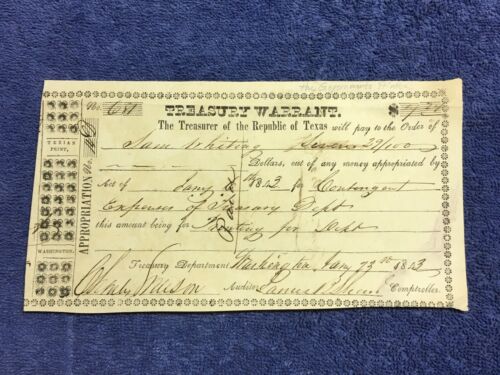 the Government
No. 681 TREASURY WARRANT. $ 7 27/100
The Treasurer of the Republic of Texas will pay to the Order of
Sam Whiting Seven 27/100
Dollars, out of any money appropriated by
Act of Jany 1843 for Contingent
Expenses of Treasury Dept
this amount being for Printing for Dept
Treasury Department, Washington Jany 1843
Auditor. James B. Shaw Comptroller.
APPROPRIATION No.
TEXIAN
PRINT,
WASHINGTON.
Paid